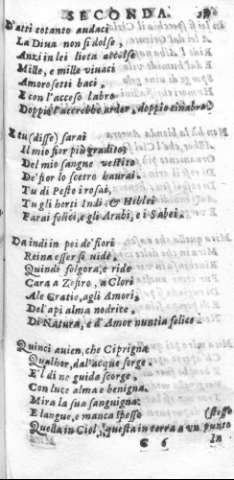 SECONDA.
D'atti cotanto audaci
La Diua non si dolse,
Anzi in lei lieta accolse
Mille, e mille viuaci
Amorosetti baci,
E con l'acceso labro
Doppio l'accrebbe ardor, doppio cinabro.
E tu (disse) sarai
Il mio fior più gradito,
Del mio sangue vestito
De' fior lo scetro haurai.
Tu di Pesto i rosai,
Tu gli horti Indi & Hiblei
Farai felici, e gli Arabi, e i Sabei.
Da indi in poi de' fiori
Reina esser si vide,
Quindi folgora, e ride
Cara a Zefiro, a Clori
Ale Gratie, agli Amori,
Del'api alma nodrice,
Di Natura, e d'Amor nuntia felice.
Quinci auien, che Ciprigna
Qualhor dal'acque sorge,
E'l dì ne guida e scorge
Con luce alma e benigna,
Mira la sua sanguigna:
E langue, e manca spesso (stesso
Quella in Ciel, questa in terra a un punto
C 6 In